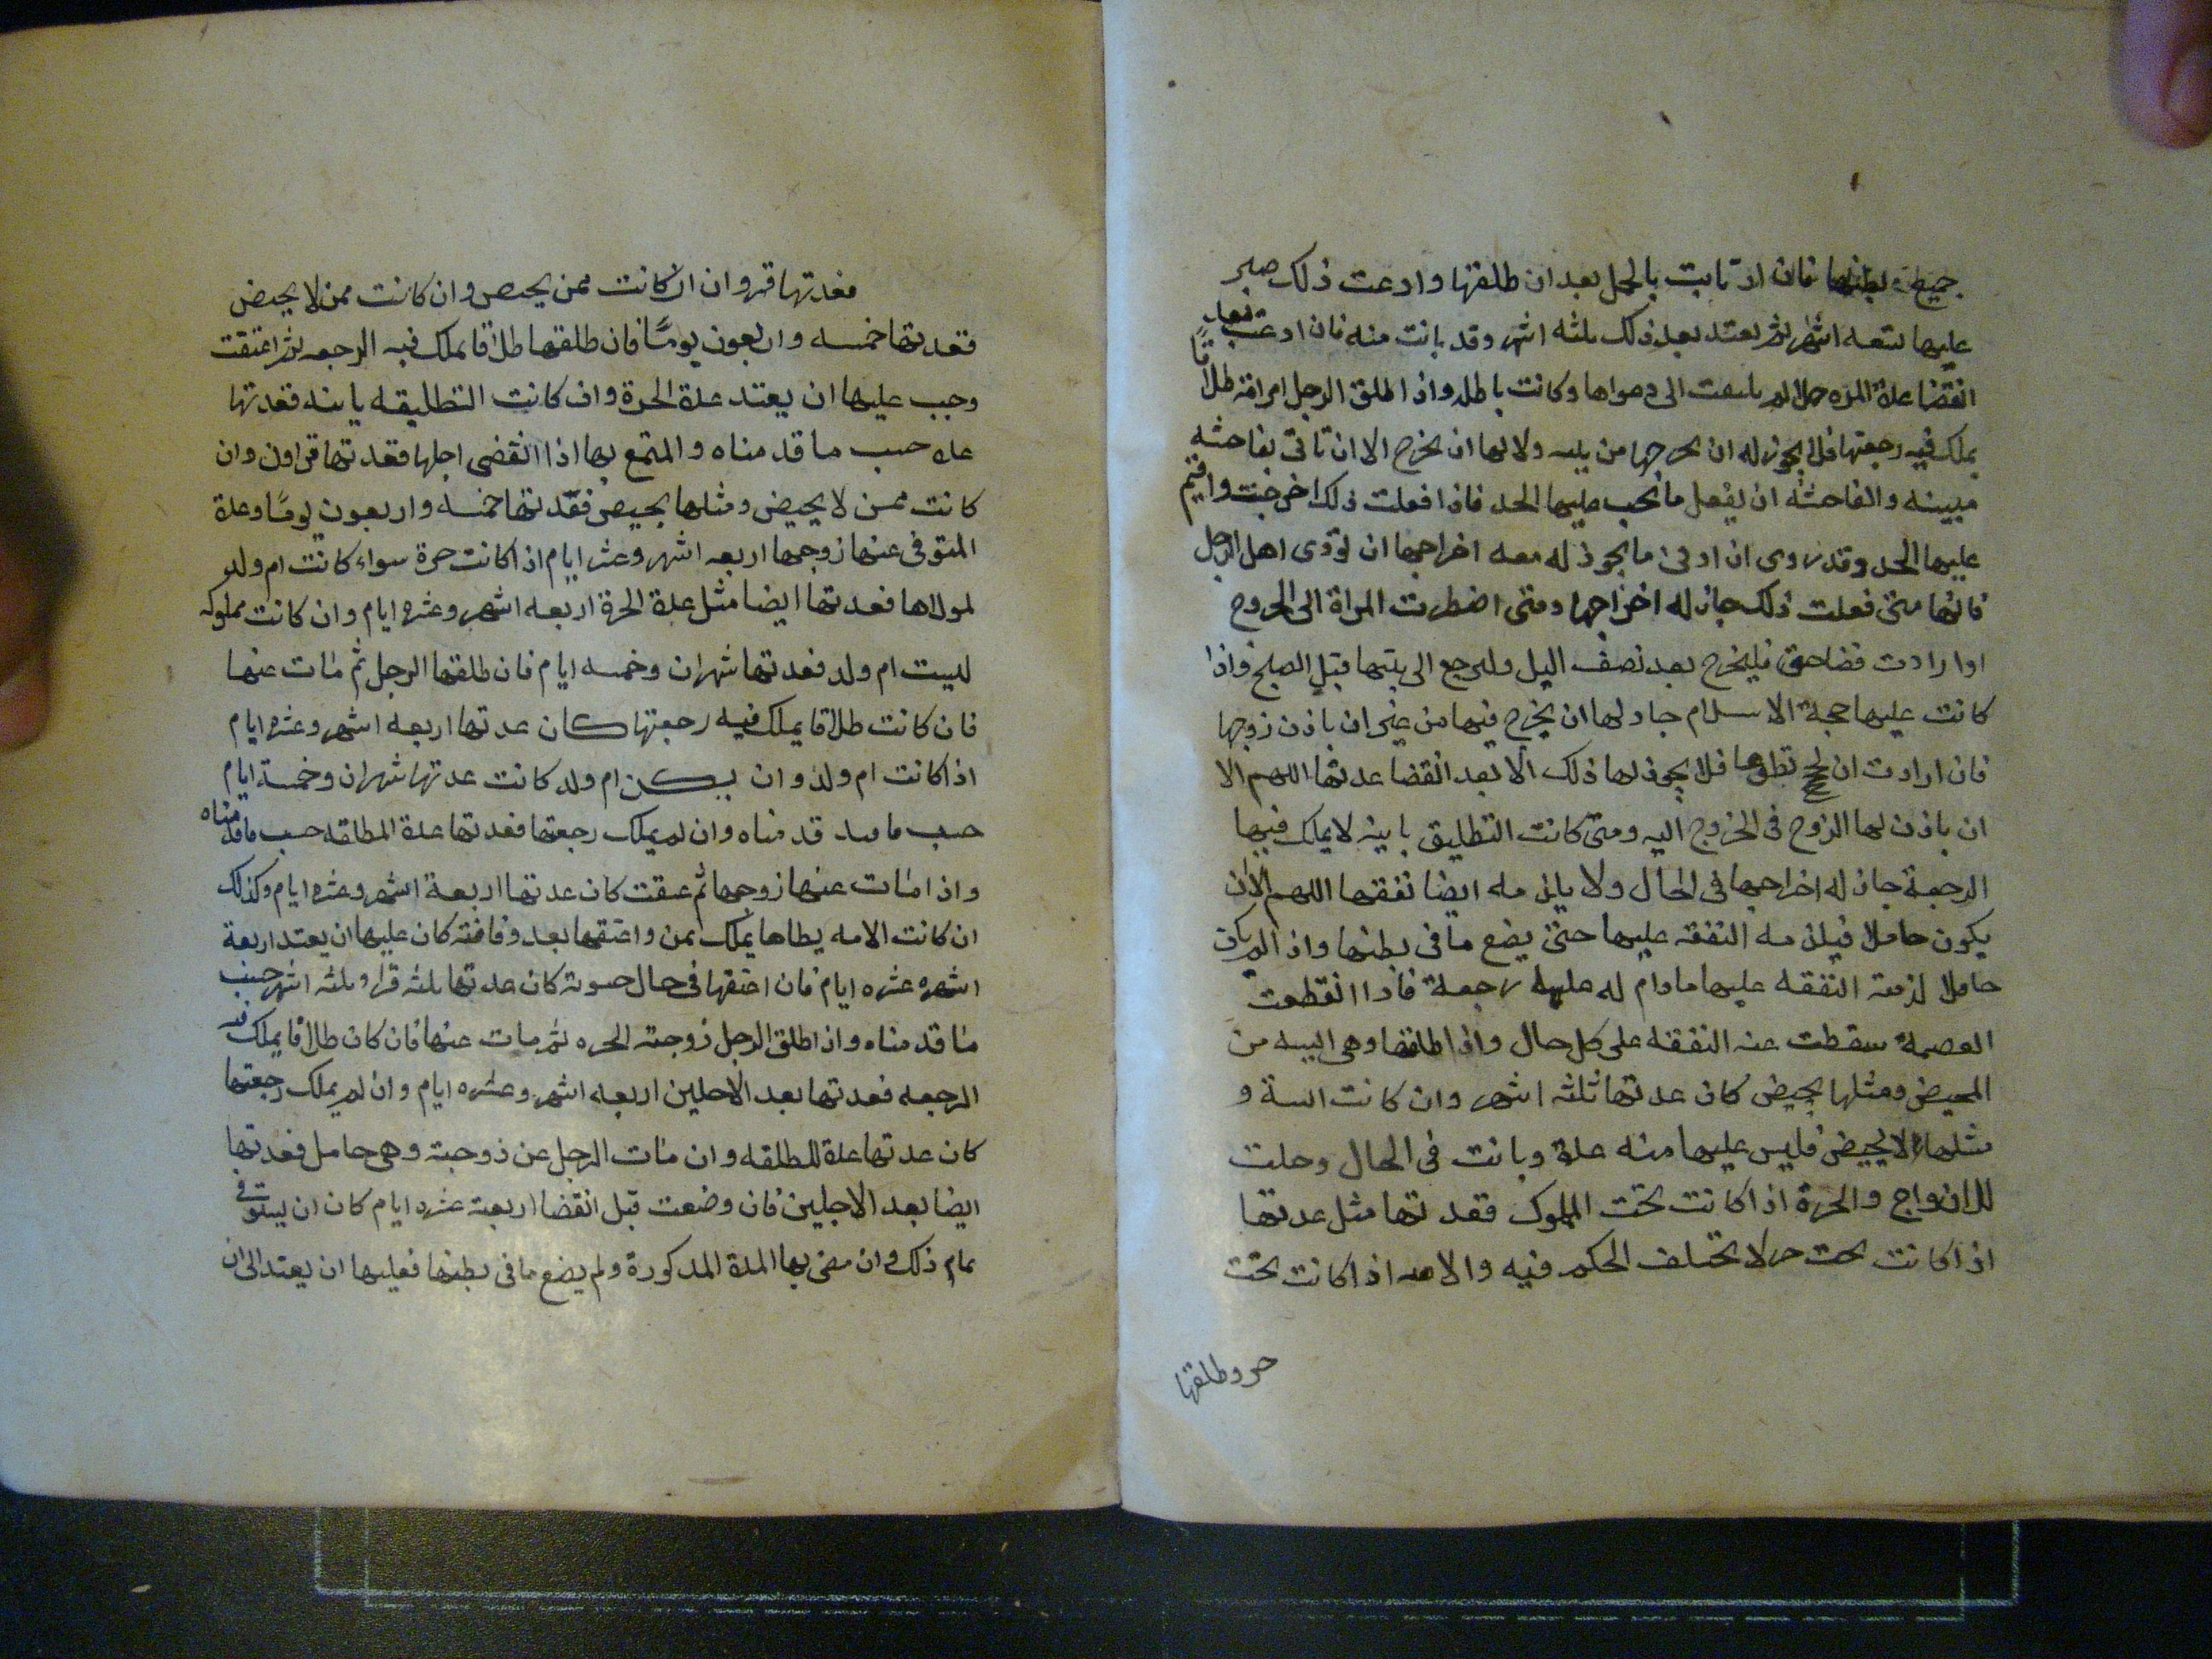 جميع ما في بطنها فان ارتابت بالحمل بعد ان طلقها وادعت ذلك صبر
عليها تسعه اشهر ثم يعتد بعد ذلك ثلثه اشهر وقد بانت منه فان ادعت بعد
انقضا عدة المره حملا لم يلتفت الى دعواها وكانت باطله واذا طلق الرجل امراته طلاقًا
يملك فيه رجعتها فلا يجوز له ان يخرجها من بيته ولا لها ان يخرج الا ان تاتى بفاحشه
مبينه والفاحشه ان يفعل ما يجب عليها الحد فاذا فعلت ذلك اخرجت واقيم
عليها الحد وقد روى ان ادنى ما يجوز له معه اخراجها ان توذى اهل الرجل
فانها متى فعلت ذلك جاز له اخراجها ومتى اضطرت المراة الى الخروج
او ارادت قضا حق فليخرج بعد نصف اليل ولترجع الى بيتها قبل الصبح واذا
كانت عليها حجة الاسلام جاز لها ان يخرج فيها من غير ان ياذن زوجها
فان ارادت ان يحج تطوعا فلا يجوز لها ذلك الا بعد انقضا عدتها اللهم الا
ان ياذن لها الزوج فى الخروج اليه ومتى كانت التطليق باينه لا يملك فيها
الرجعة جاز له اخراجها فى الحال ولا يلزمه ايضا نفقتها اللهم الا ان
يكون حاملا فيلزمه النفقه عليها حتى يضع ما فى بطنها واذا لم يكن
حاملا لزمته النفقه عليها مادام له عليها رجعة فاذا انقطعت
العصمة سقطت عنه النفقه على كل حال واذا طلقها وهى ايسه من
المحيض ومثلها يحيض كان عدتها ثلثه اشهر وان كانت ايسة و
مثلها لا يحيض فليس عليها منه عدة وبانت فى الحال وحلت
للازواج والحرة اذا كانت تحت المملوك فعدتها مثل عدتها
اذا كانت تحت حر لا يختلف الحكم فيه والامه اذا كانت تحت
حر وطلقها
فعدتها قروان ان كانت ممن يحيض وان كانت ممن لا يحيض
فعدتها خمسه واربعون يومًا فان طلقها طلاقا يملك فيه الرجعه ثم اعتقت
وجب عليها ان يعتد عدة الحرة وان كانت التطليقه باينه فعدتها
عده حسب ما قدمناه والمتمتع بها اذا انقضى اجلها فعدتها قراون وان
كانت ممن لا يحيض ومثلها يحيض فعدتها خمسه واربعون يومًا وعدة
المتوفى عنها زوجها اربعه اشهر وعشر ايام اذا كانت حرة سواء كانت ام ولد
لمولاها فعدتها ايضا مثل عدة الحرة اربعه اشهر وعشره ايام وان كانت مملوكه
ليست ام ولد فعدتها شهران وخمسه ايام فان طلقها الرجل ثم مات عنها
فان كانت طلاقا يملك فيه رجعتها كان عدتها اربعه اشهر وعشره ايام
اذا كانت ام ولد وان لم يكن ام ولد كانت عدتها شهران وخمسة ايام
حسب ما قد قدمناه وان لم يملك رجعتها فعدتها عدة المطلقه حسب ما قدمناه
واذا مات عنها زوجها ثم عتقت كان عدتها اربعة اشهر وعشره ايام وكذلك
ان كانت الامه يطاها بملك يمن واعتقها بعد وفاته كان عليها ان يعتد اربعة
اشهر وعشره ايام فان اعتقها فى حال حيوته كان عدتها ثلثه قراو ثلثه اشهر حسب
ما قدمناه واذا طلق الرجل زوجته الحره ثم مات عنها فان كان طلاقا يملك فيه
الرجعه فعدتها بعد الاجلين اربعه اشهر وعشره ايام وان لم يملك رجعتها
كان عدتها عدة المطلقه وان مات الرجل عن زوجته وهى حامل فعدتها
ايضا بعد الاجلين فان وضعت قبل انقضا اربعة عشره ايام كان ان يستوفى
تمام ذلك وان مضى بها المدة المذكورة ولم يضع ما فى بطنها فعليها ان يعتد الى ان